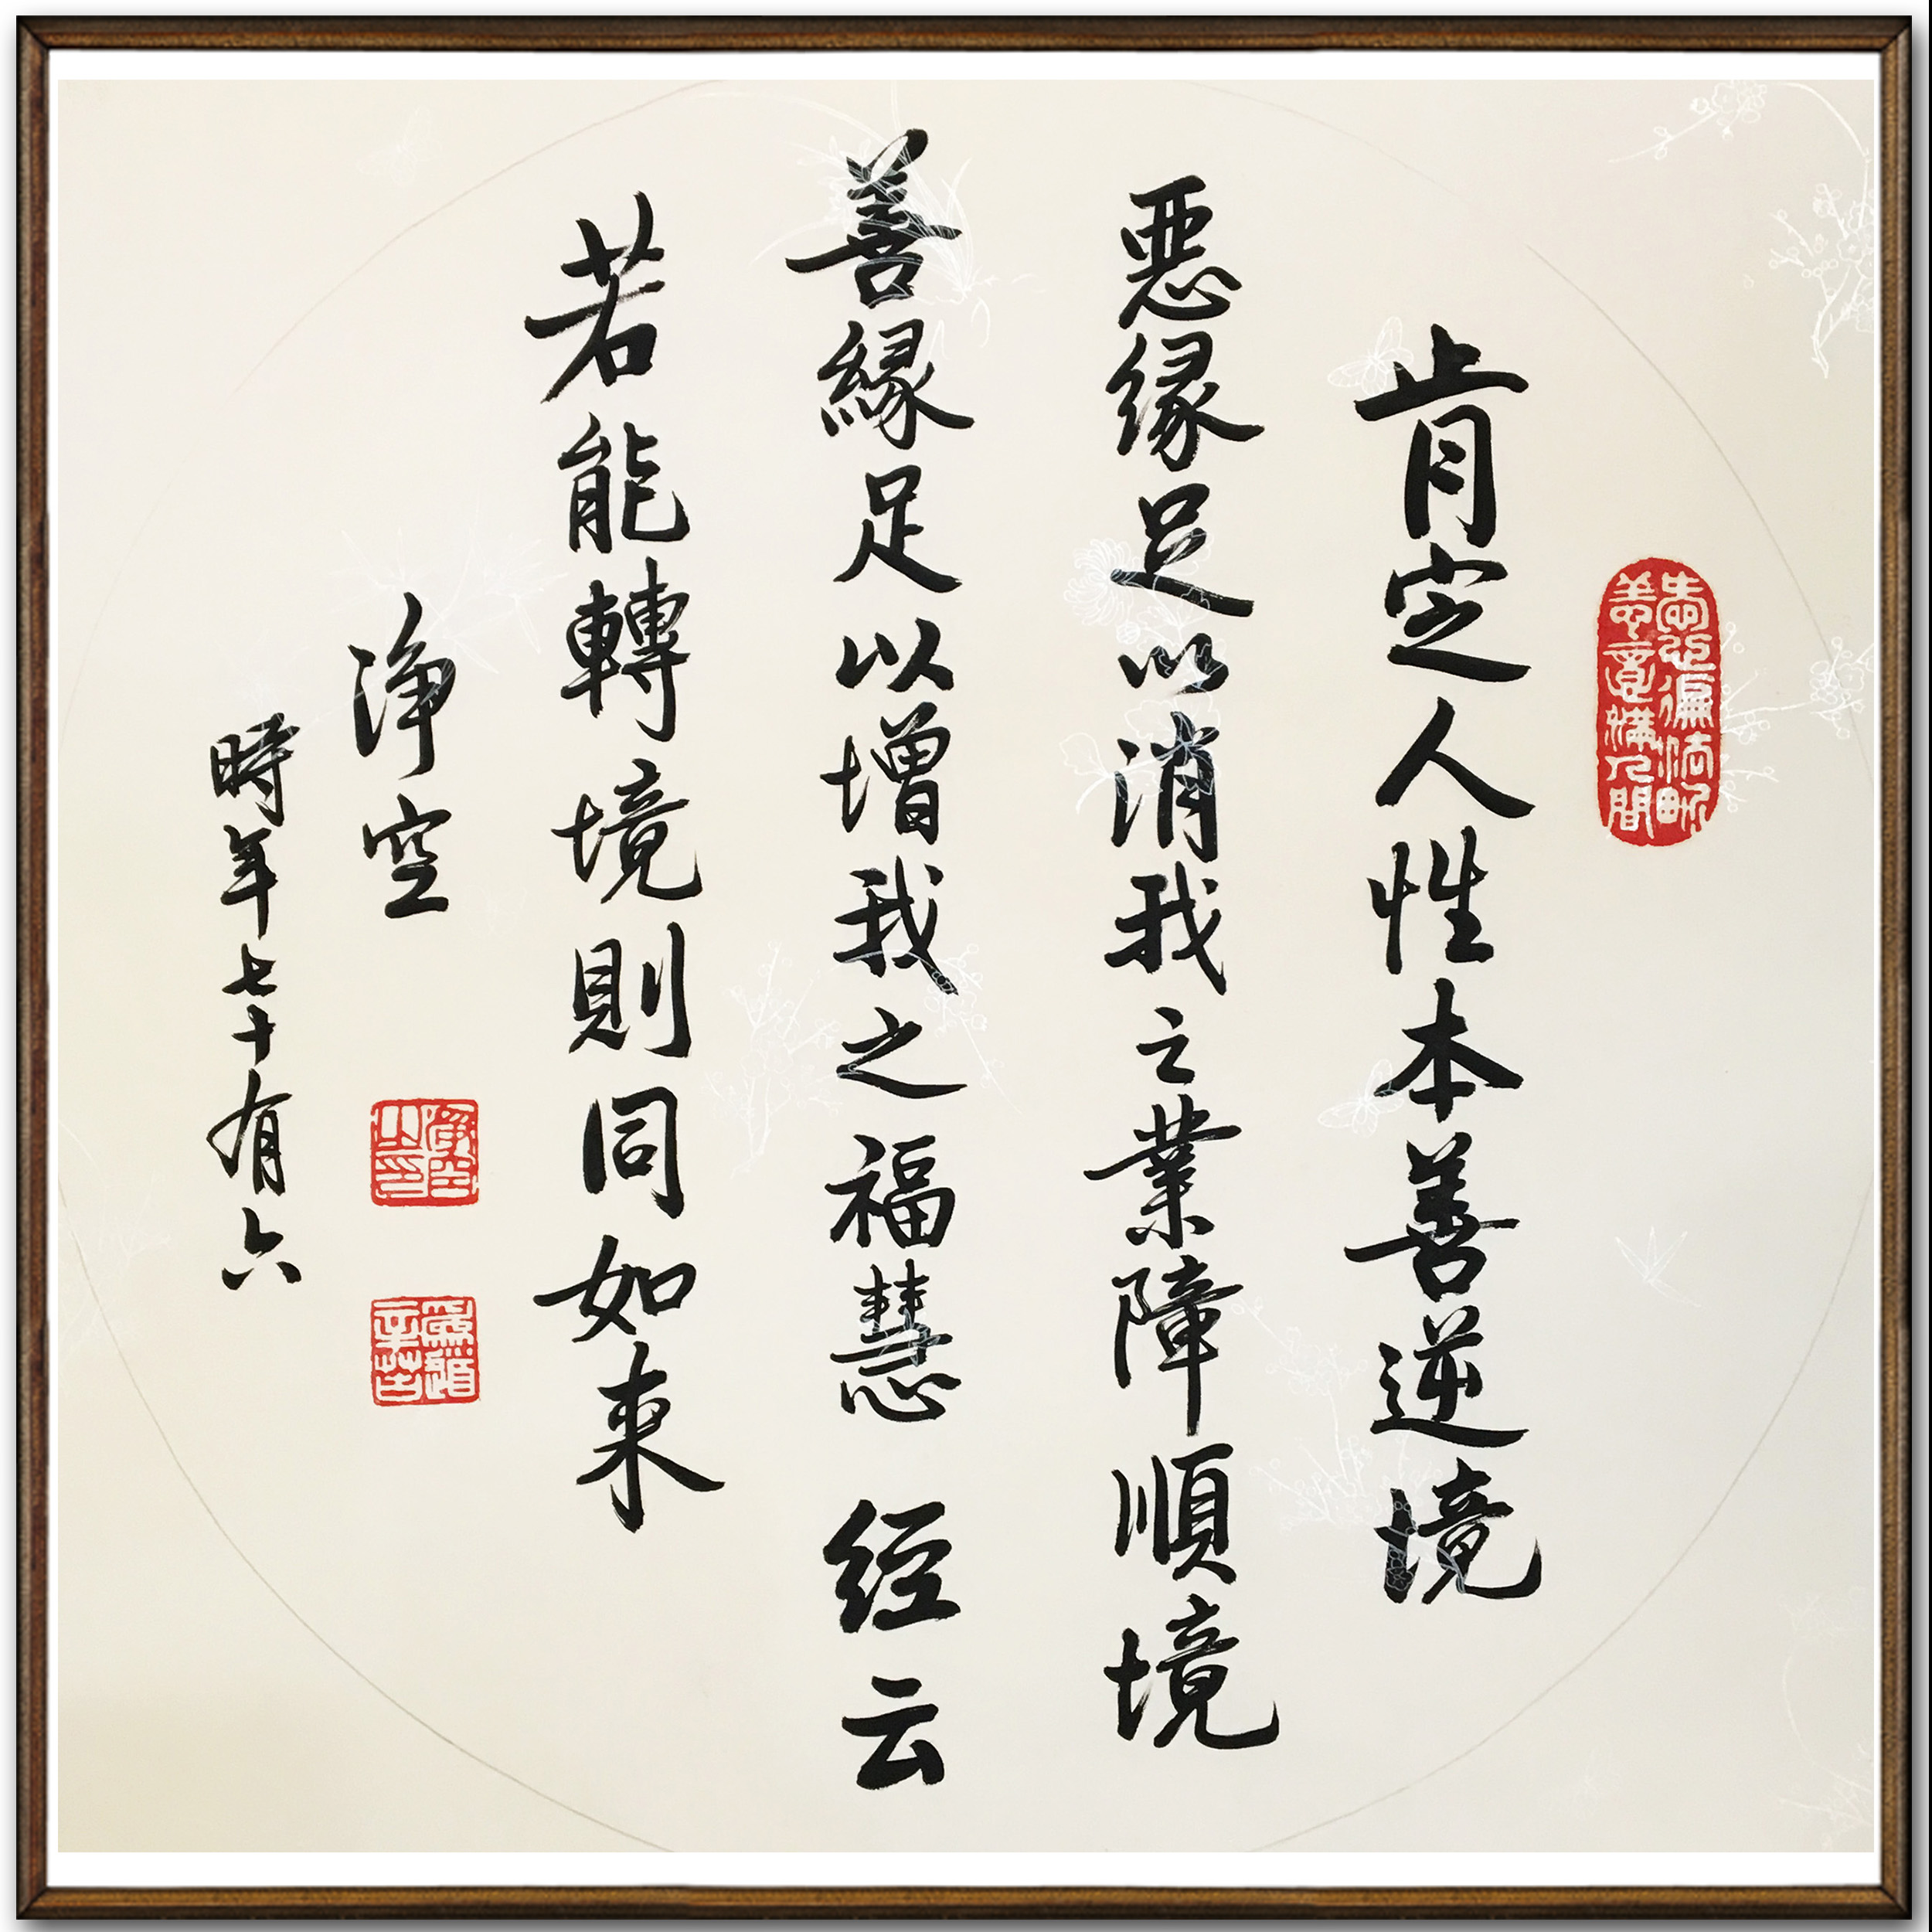 肯定人性本善逆境
惡緣足以消我之業障順境
善緣足以增我之福慧 经云
若能轉境則同如来
淨空
時年七十有六
淨空之印